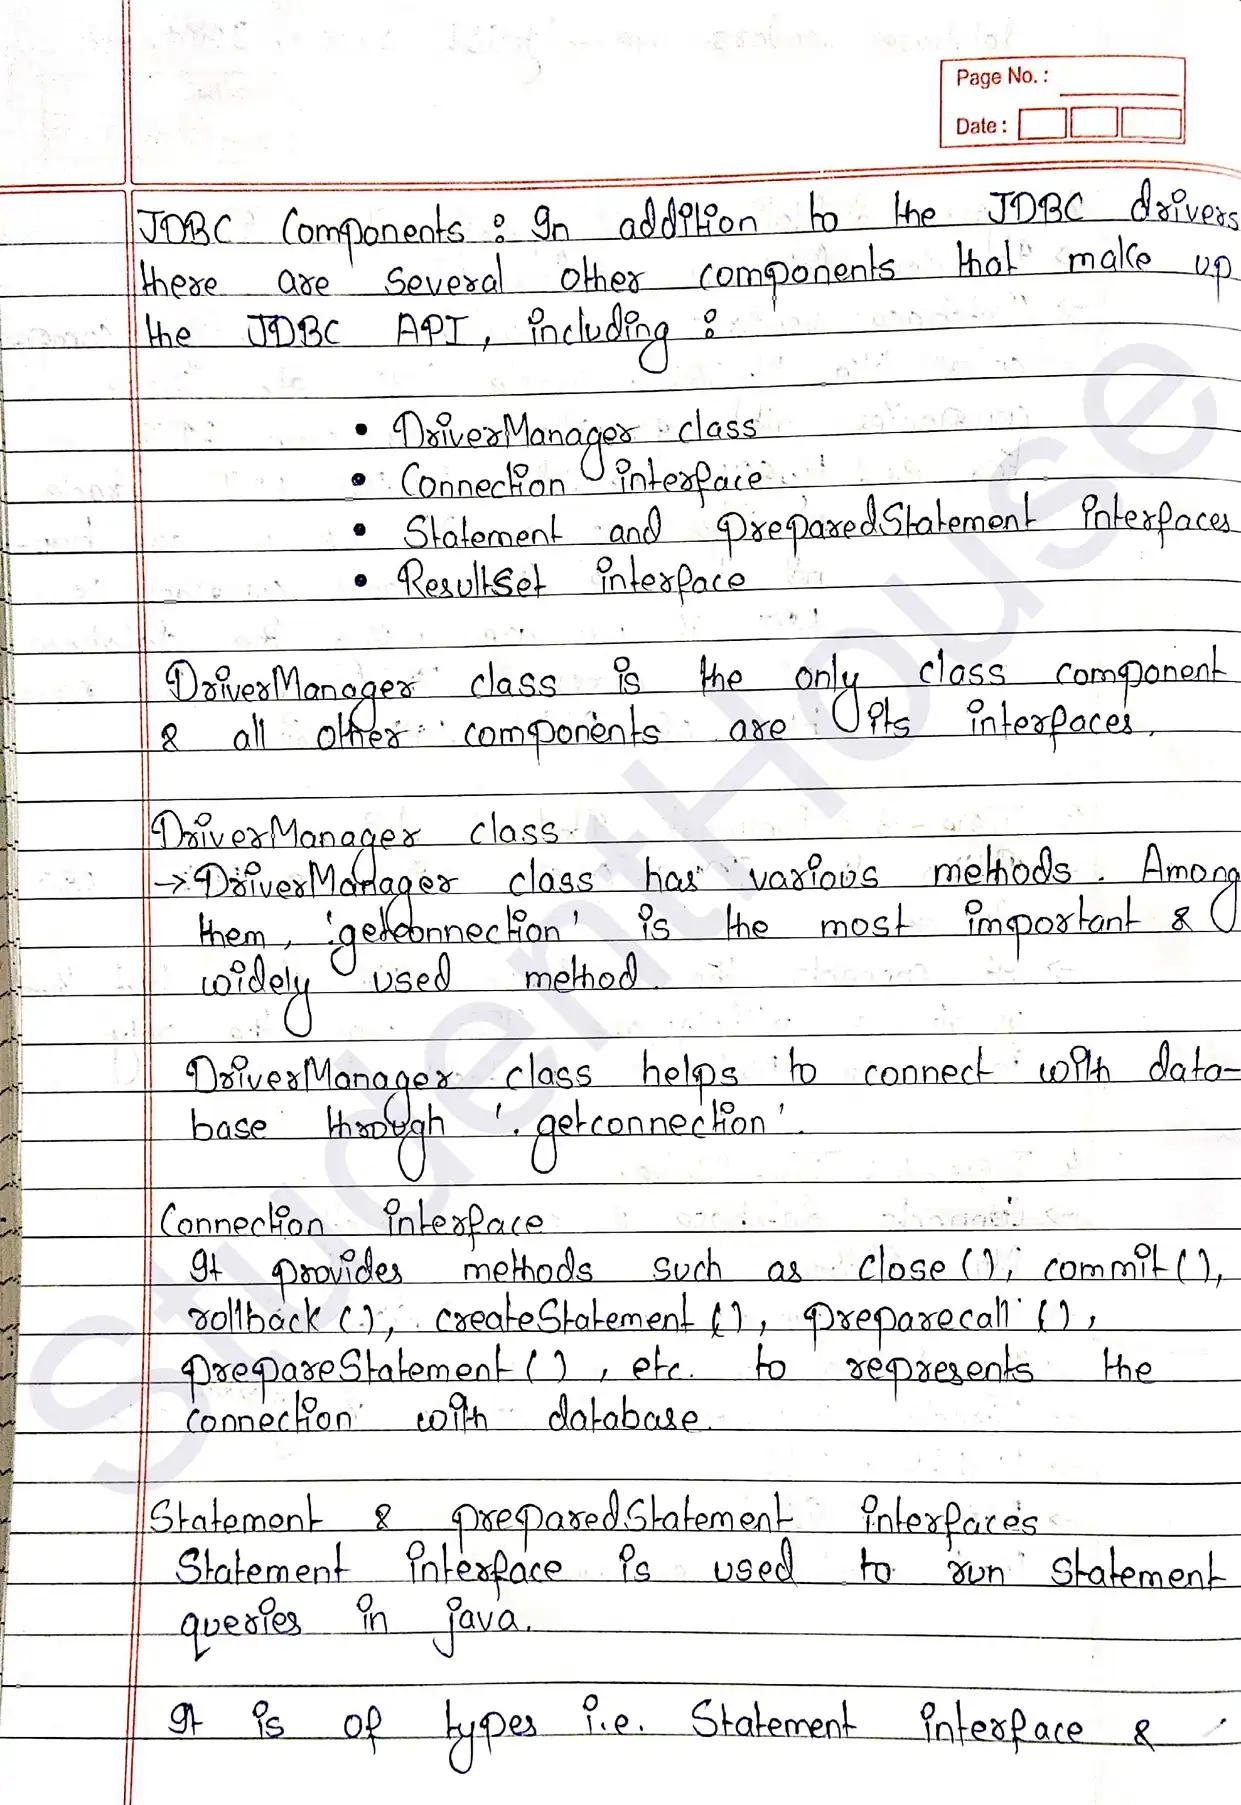 Page No. :
Date :
JDBC Components : In addition to the JDBC drivers
there are several other components that make up
the JDBC API, including :
• DriverManager class
• Connection interface
• Statement and preparedStatement interfaces
• ResultSet interface
DriverManager class is the only class component
& all other components are its interfaces.
DriverManager class
→ DriverManager class has various methods. Among
them, '.getconnection' is the most important &
widely used method.
DriverManager class helps to connect with data-
base through '.getconnection'.
Connection interface
It provides methods such as close(), commit(),
rollback(), createStatement(), preparecall(),
prepareStatement(), etc. to represents the
connection with database.
Statement & preparedStatement interfaces
Statement interface is used to run statement
queries in java.
It is of types i.e. Statement interface &
StudentHouse